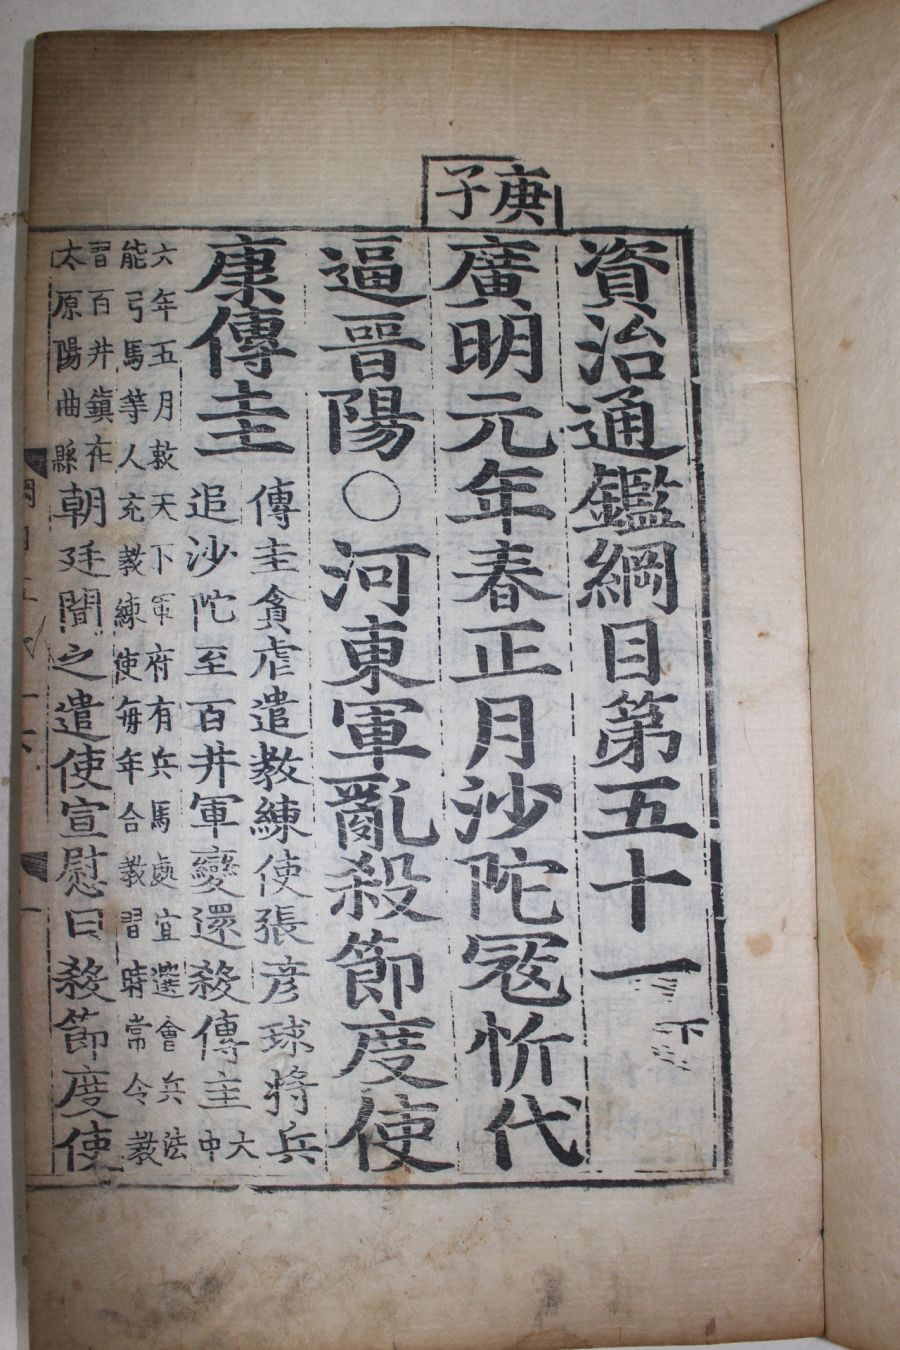 資治通鑑綱目第五十一 下
庚子
廣明元年春正月沙陀冦忻代
逼晉陽○河東軍亂殺節度使
康傳圭
傳圭貪虐遣教練使張彦球將兵
追沙陀至百井軍變還殺傳圭
大中
六年五月敕天下軍府有兵馬處宜選會兵法
能弓馬等人充教練使每年合教習時常令教
習百井鎮在
太原陽曲縣
朝廷聞之遣使宣慰曰殺節度使